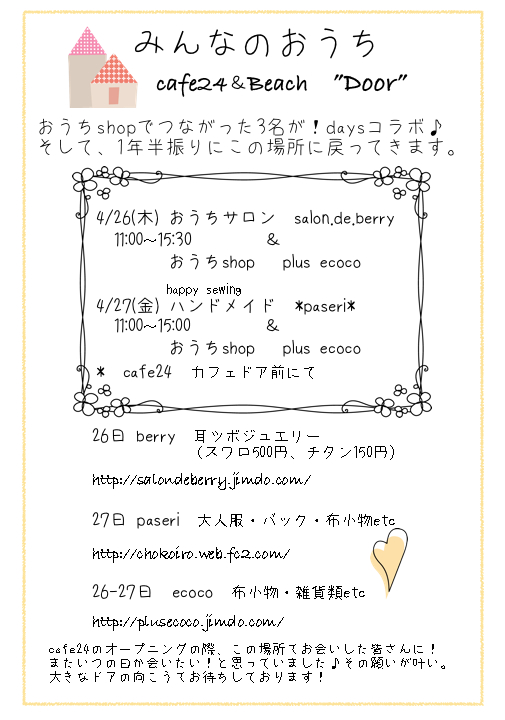 みんなのおうち
cafe24＆Beach　"Door"
おうちshopでつながった3名が！daysコラボ♪
そして、1年半振りにこの場所に戻ってきます。
4/26(木) おうちサロン　salon.de.berry
11:00～15:30　　　　＆
おうちshop　plus ecoco
happy sewing
4/27(金) ハンドメイド　*paseri*
11:00～15:00　　　　＆
おうちshop　plus ecoco
*　cafe24　カフェドア前にて
26日 berry　耳ツボジュエリー
(スワロ500円、チタン150円)
http://salondeberry.jimdo.com/
27日 paseri　大人服・バック・布小物etc
http://chokoiro.web.fc2.com/
26-27日　ecoco　布小物・雑貨類etc
http://plusecoco.jimdo.com/
cafe24のオープニングの際、この場所でお会いした皆さんに！
またいつの日か会いたい！と思っていました♪その願いが叶い。
大きなドアの向こうでお待ちしております！